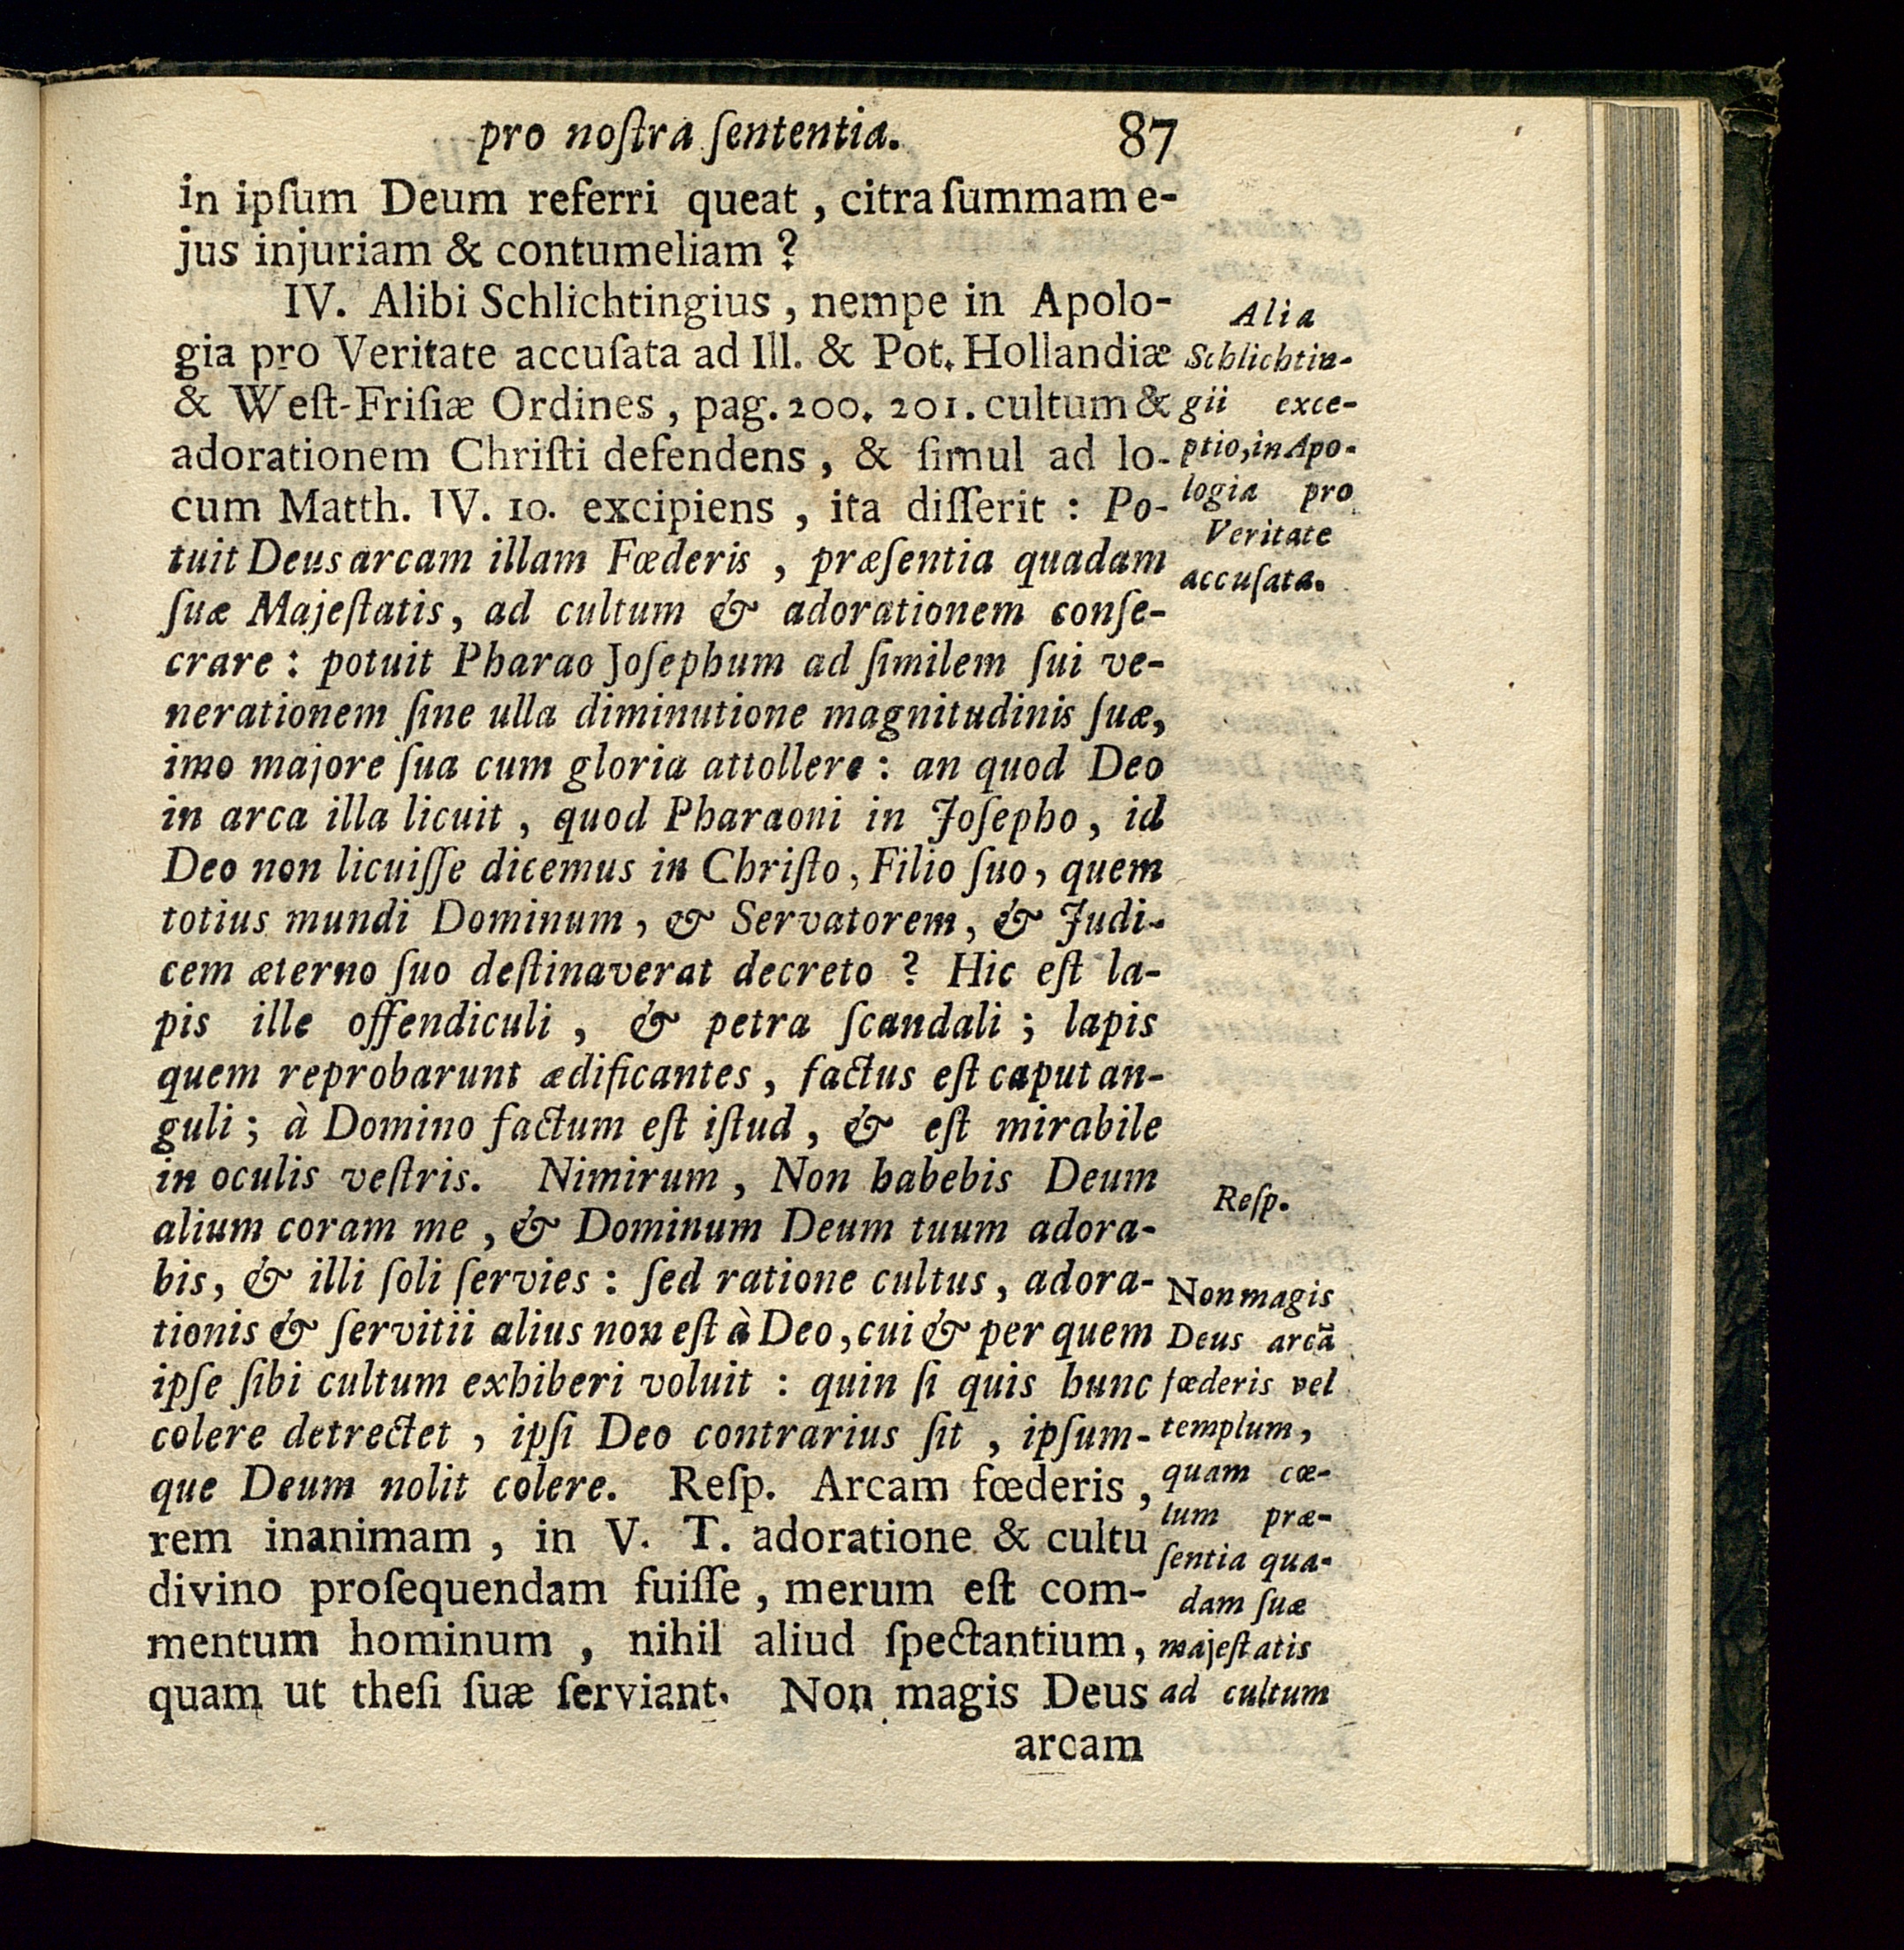 pro noſtra ſententia. 87
in ipſum Deum referri queat, citra ſummam e-
jus injuriam & contumeliam?
IV. Alibi Schlichtingius, nempe in Apolo-
gia pro Veritate accuſata ad Ill. & Pot. Hollandiæ
& Weſt-Friſiæ Ordines, pag. 200. 201. cultum &
adorationem Chriſti defendens, & ſimul ad lo-
cum Matth. IV. 10. excipiens, ita diſſerit: Po-
tuit Deus arcam illam Fœderis, præſentia quadam
ſuæ Majeſtatis, ad cultum & adorationem conſe-
crare: potuit Pharao Joſephum ad ſimilem ſui ve-
nerationem ſine ulla diminutione magnitudinis ſuæ,
imo majore ſua cum gloria attollere: an quod Deo
in arca illa licuit, quod Pharaoni in Joſepho, id
Deo non licuiſſe dicemus in Chriſto, Filio ſuo, quem
totius mundi Dominum, & Servatorem, & Judi-
cem æterno ſuo deſtinaverat decreto? Hic eſt la-
pis ille offendiculi, & petra ſcandali; lapis
quem reprobarunt ædificantes, factus eſt caput an-
guli; à Domino factum eſt iſtud, & eſt mirabile
in oculis veſtris. Nimirum, Non habebis Deum
alium coram me, & Dominum Deum tuum adora-
bis, & illi ſoli ſervies: ſed ratione cultus, adora-
tionis & ſervitii alius non eſt à Deo, cui & per quem
ipſe ſibi cultum exhiberi voluit: quin ſi quis hunc
colere detrectet, ipſi Deo contrarius ſit, ipſum-
que Deum nolit colere. Reſp. Arcam fœderis,
rem inanimam, in V. T. adoratione & cultu
divino proſequendam fuiſſe, merum eſt com-
mentum hominum, nihil aliud ſpectantium,
quam ut theſi ſuæ ſerviant. Non magis Deus
arcam
Alia
Schlichtin-
gii exce-
ptio, in Apo-
logia pro
Veritate
accuſata.
Reſp.
Non magis
Deus arcã
fœderis vel
templum,
quam cœ-
lum præ-
ſentia qua-
dam ſuæ
majeſtatis
ad cultum